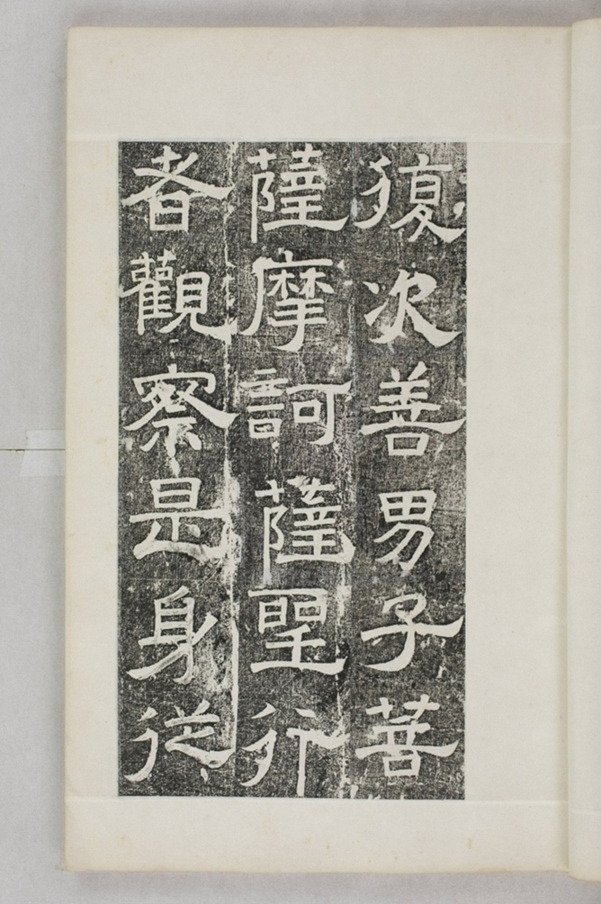 復次善男子菩
薩摩訶薩聖行
者觀察是身從